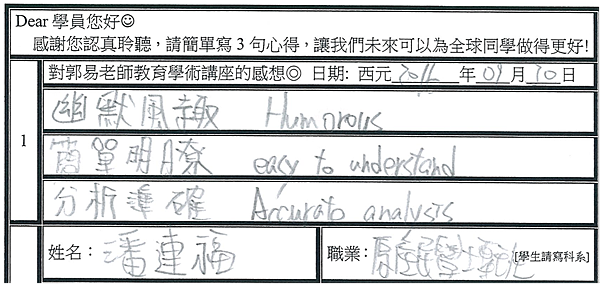 Dear 學員您好☺
感謝您認真聆聽，請簡單寫 3 句心得，讓我們未來可以為全球同學做得更好!
對郭易老師教育學術講座的感想◎ 日期: 西元 2016 年 09 月 30 日
1
幽默風趣 Humorous
簡單明瞭 easy to understand
分析準確 Accurate analysts
姓名：潘連福 職業： [學生請寫科系]